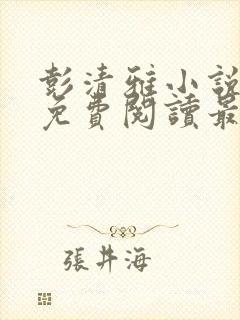 彭清雅小說
免費閱讀最
張井海